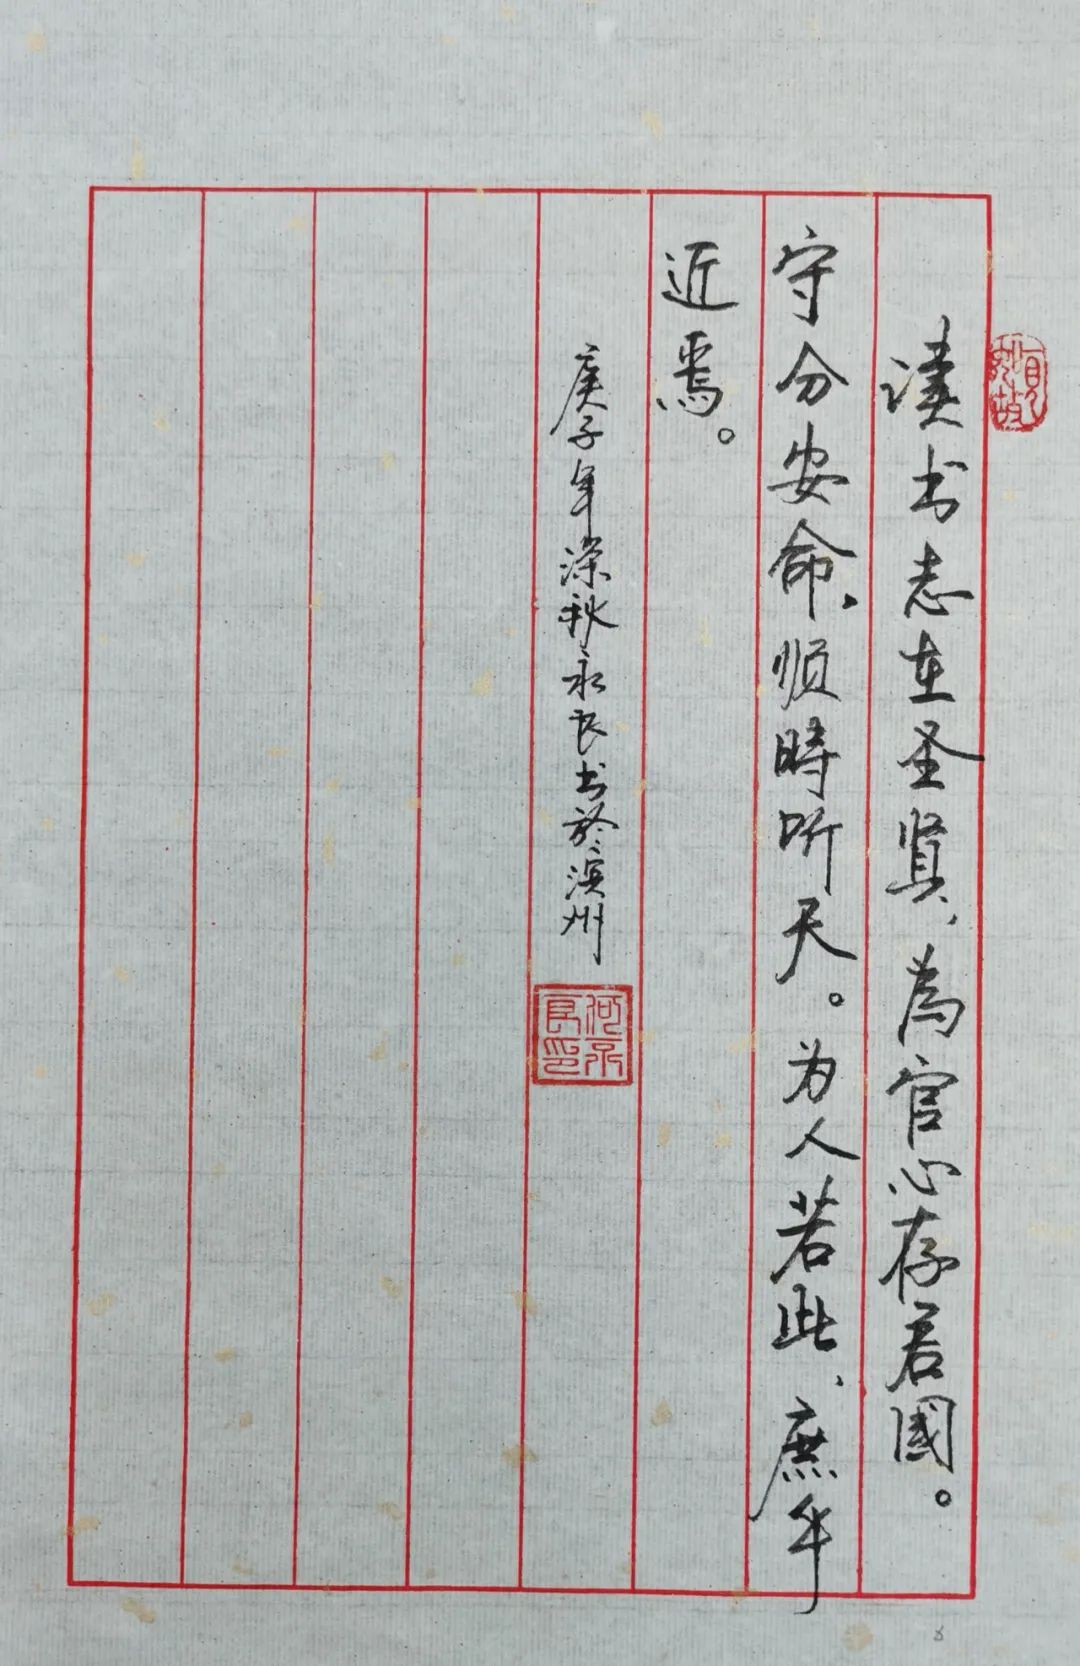 读书志在圣贤、為官心存君國。
守分安命、顺時听天。为人若此、庶乎
近焉。
庚子年深秋永良书於滨州
何永良印